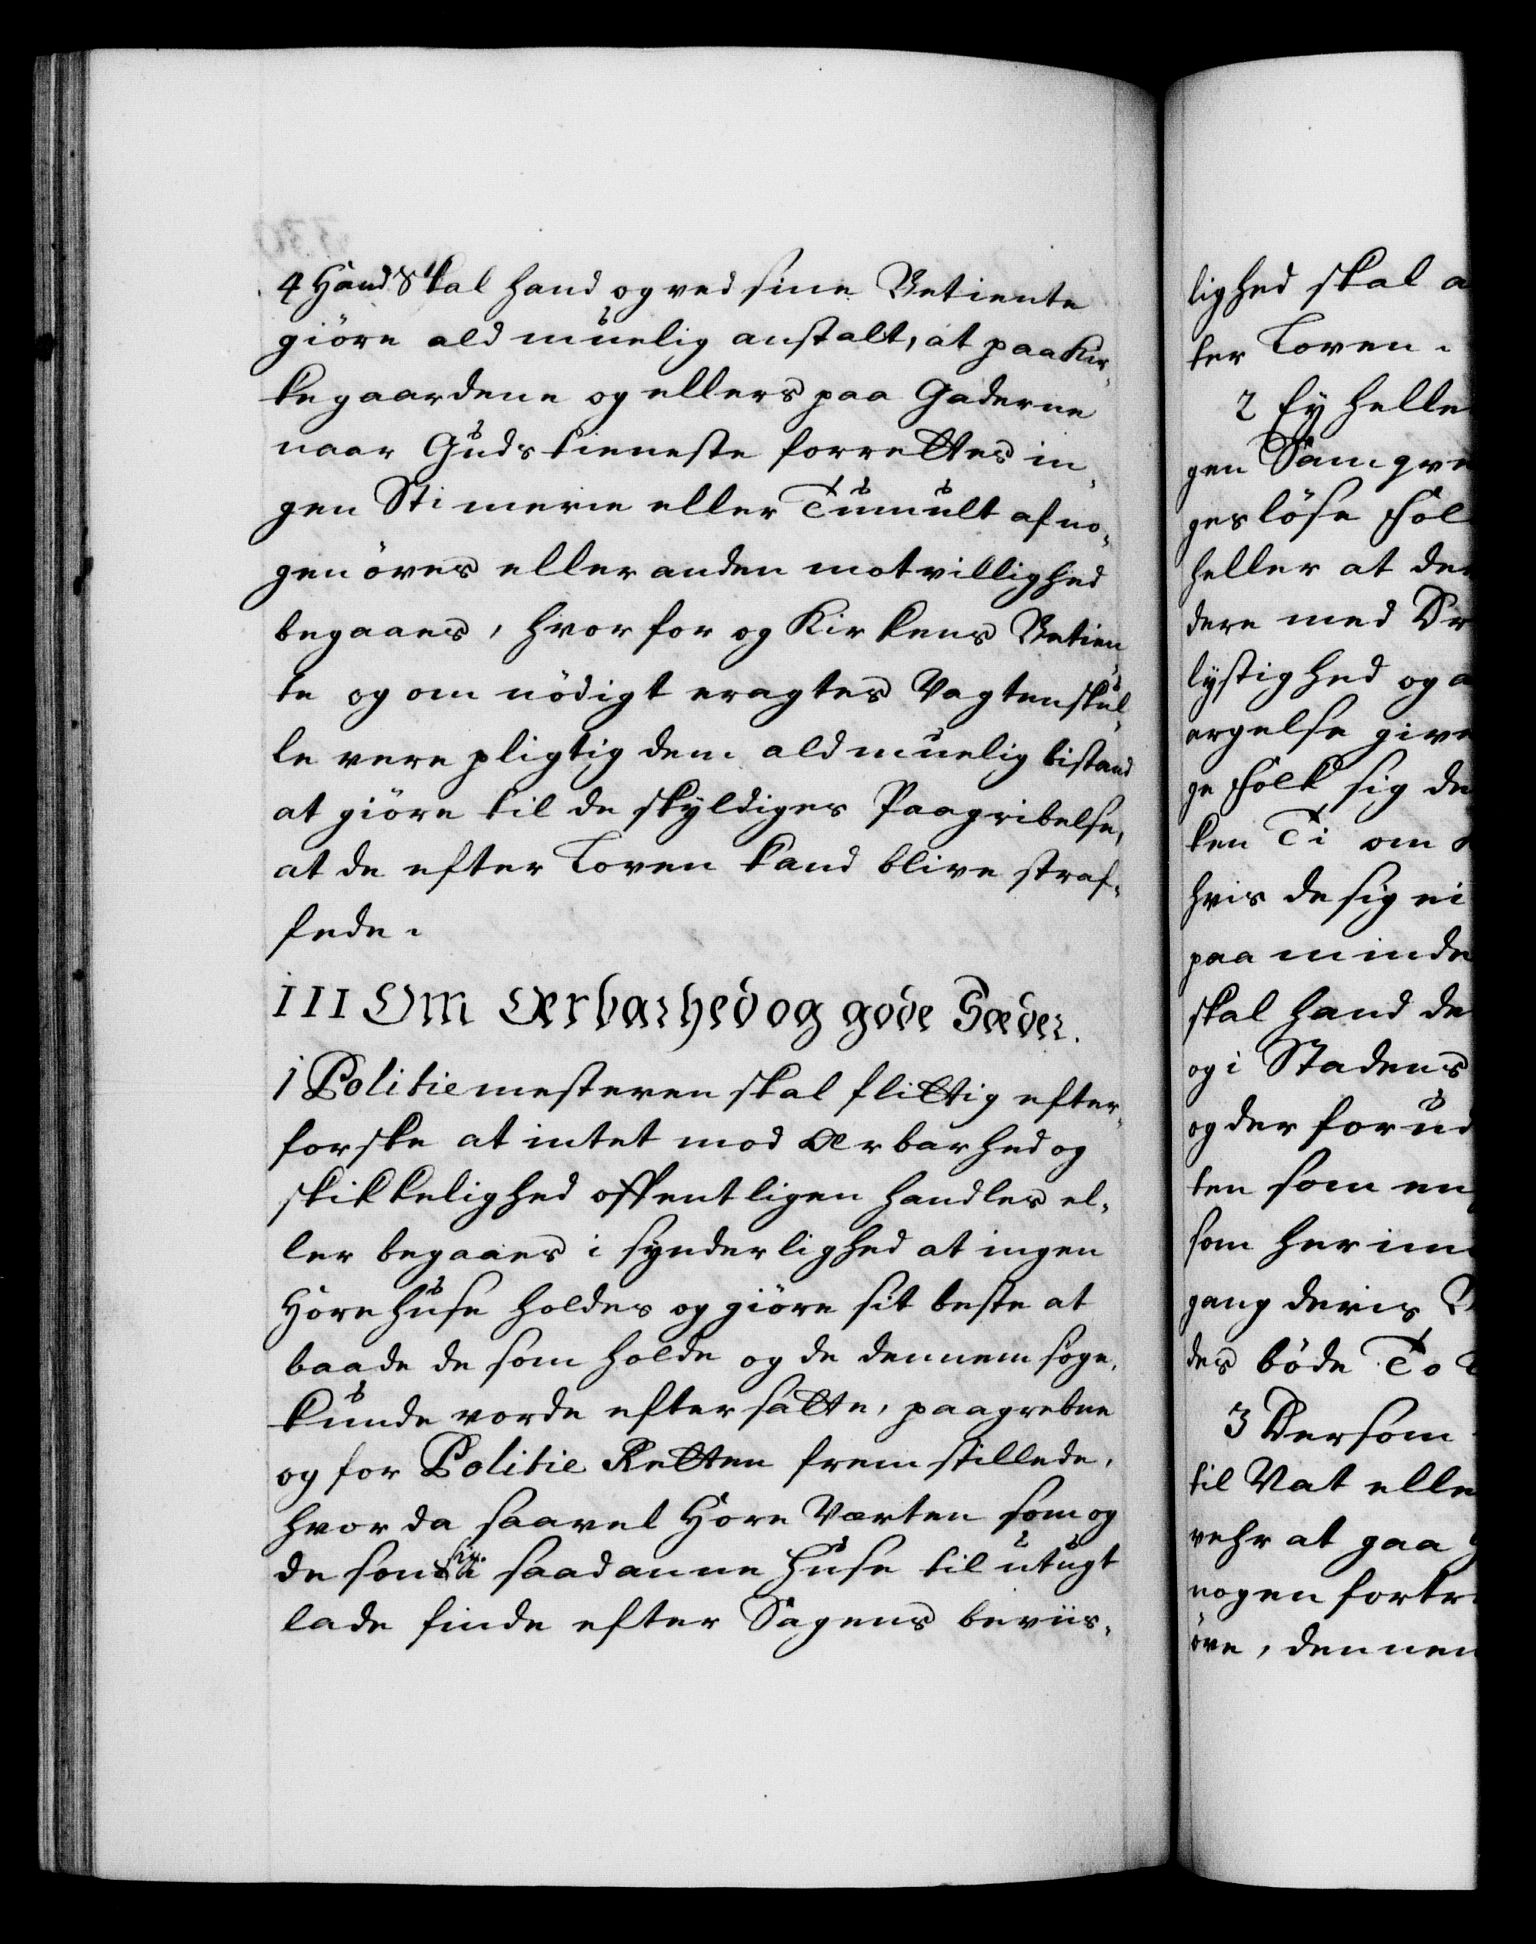 4 Hand Skal hand og ved sine Betiente
giöre ald muelig anstalt, at paa Kir-
kegaardene og ellers paa Gaderne
naar Gudstieneste forrettes in-
gen Stimerie eller Tumult af no-
gen öves eller anden motvillighed
begaaes, hvorfor og Kirkens Betien-
te og om nödigt eragtes Vagten skul-
le vere pligtig dem ald muelig bistand
at giöre til de skyldiges Paagribelse,
at de efter Loven kand blive straf-
fede.
III Om Ærbarhed og gode Sæder.
1 Politiemesteren skal flittig efter-
forske at intet mod Ærbarhed og
skikkelighed offentligen handles el-
ler begaaes i synderlighed at ingen
Horehuse holdes og giöre sit beste at
baade de som holde og de dennem söge,
kunde vorde eftersatte, paagrebne
og for Politie Retten fremstillede,
hvor da saavel Hore Værten som og
de som sig i saadanne Huse til utugt
lade finde efter Sagens beviis-
lighed skal a
ter Loven.
2 Ey helle
gen Samqve
gesløse Fol
heller at de
dere med Dr
lystighed og a
argelse give
ge Folk sig de
ken Ti om
hvis de sig ei
paaminde
skal hand de
og i Stadens
og der forud
ten som en
som herim
gang deris
des böde To
3 Dersom
til Vat elle
vehr at gaa
nogen fortr
öve, dennen